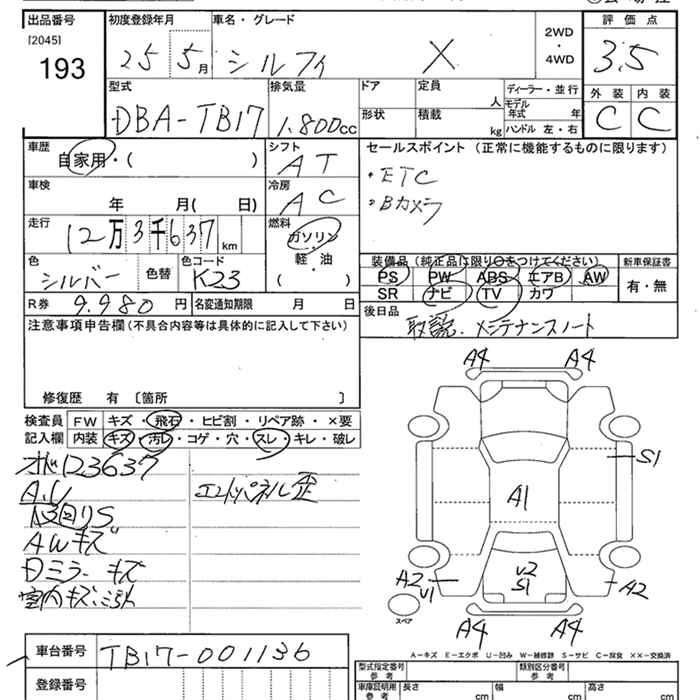 出品番号 初度登録年月 車名・グレード 2WD・4WD 評価点
[2045]
193 25 5月 シルフィ X 3.5
型式 排気量 ドア 定員 人 ディーラー・並行 外装 内装
DBA-TB17 1.800cc 形状 積載 kg モデル年式 年 ハンドル 左・右 C C
車歴 自家用・( ) シフト AT セールスポイント (正常に機能するものに限ります)
車検 年 月( 日) 冷房 AC ・ETC
・Bカメラ
走行 12万3千637km 燃料 ガソリン・軽・油 ( )
色 シルバー 色替 色コード K23
装備品 (純正品に限り○をつけてください) 新車保証書
PS PW ABS エアB AW 有・無
SR ナビ TV カワ
R券 9.980円 名変通知期限 月 日
後日品 取説.メンテナンスノート
注意事項申告欄 (不具合内容等は具体的に記入して下さい)
修復歴 有 〔箇所 〕
検査員 FW キズ・飛石・ヒビ割・リペア跡・×要
記入欄 内装 キズ・汚レ・コゲ・穴・スレ・キレ・破レ
123637
A.U エンドパネル歪
S
AWキズ
Dミラーキズ
室内キズ、
A4 A4
S1
A1
A2 U1 U2 S1 A2
スペア
A4 A4
A－キズ E－エクボ U－凹み W－補修跡 S－サビ C－腐食 XX－交換済
車台番号 TB17-001136
型式指定番号 参考 類別区分番号 参考
登録番号 車庫証明用 参考 長さ cm 幅 cm 高さ cm